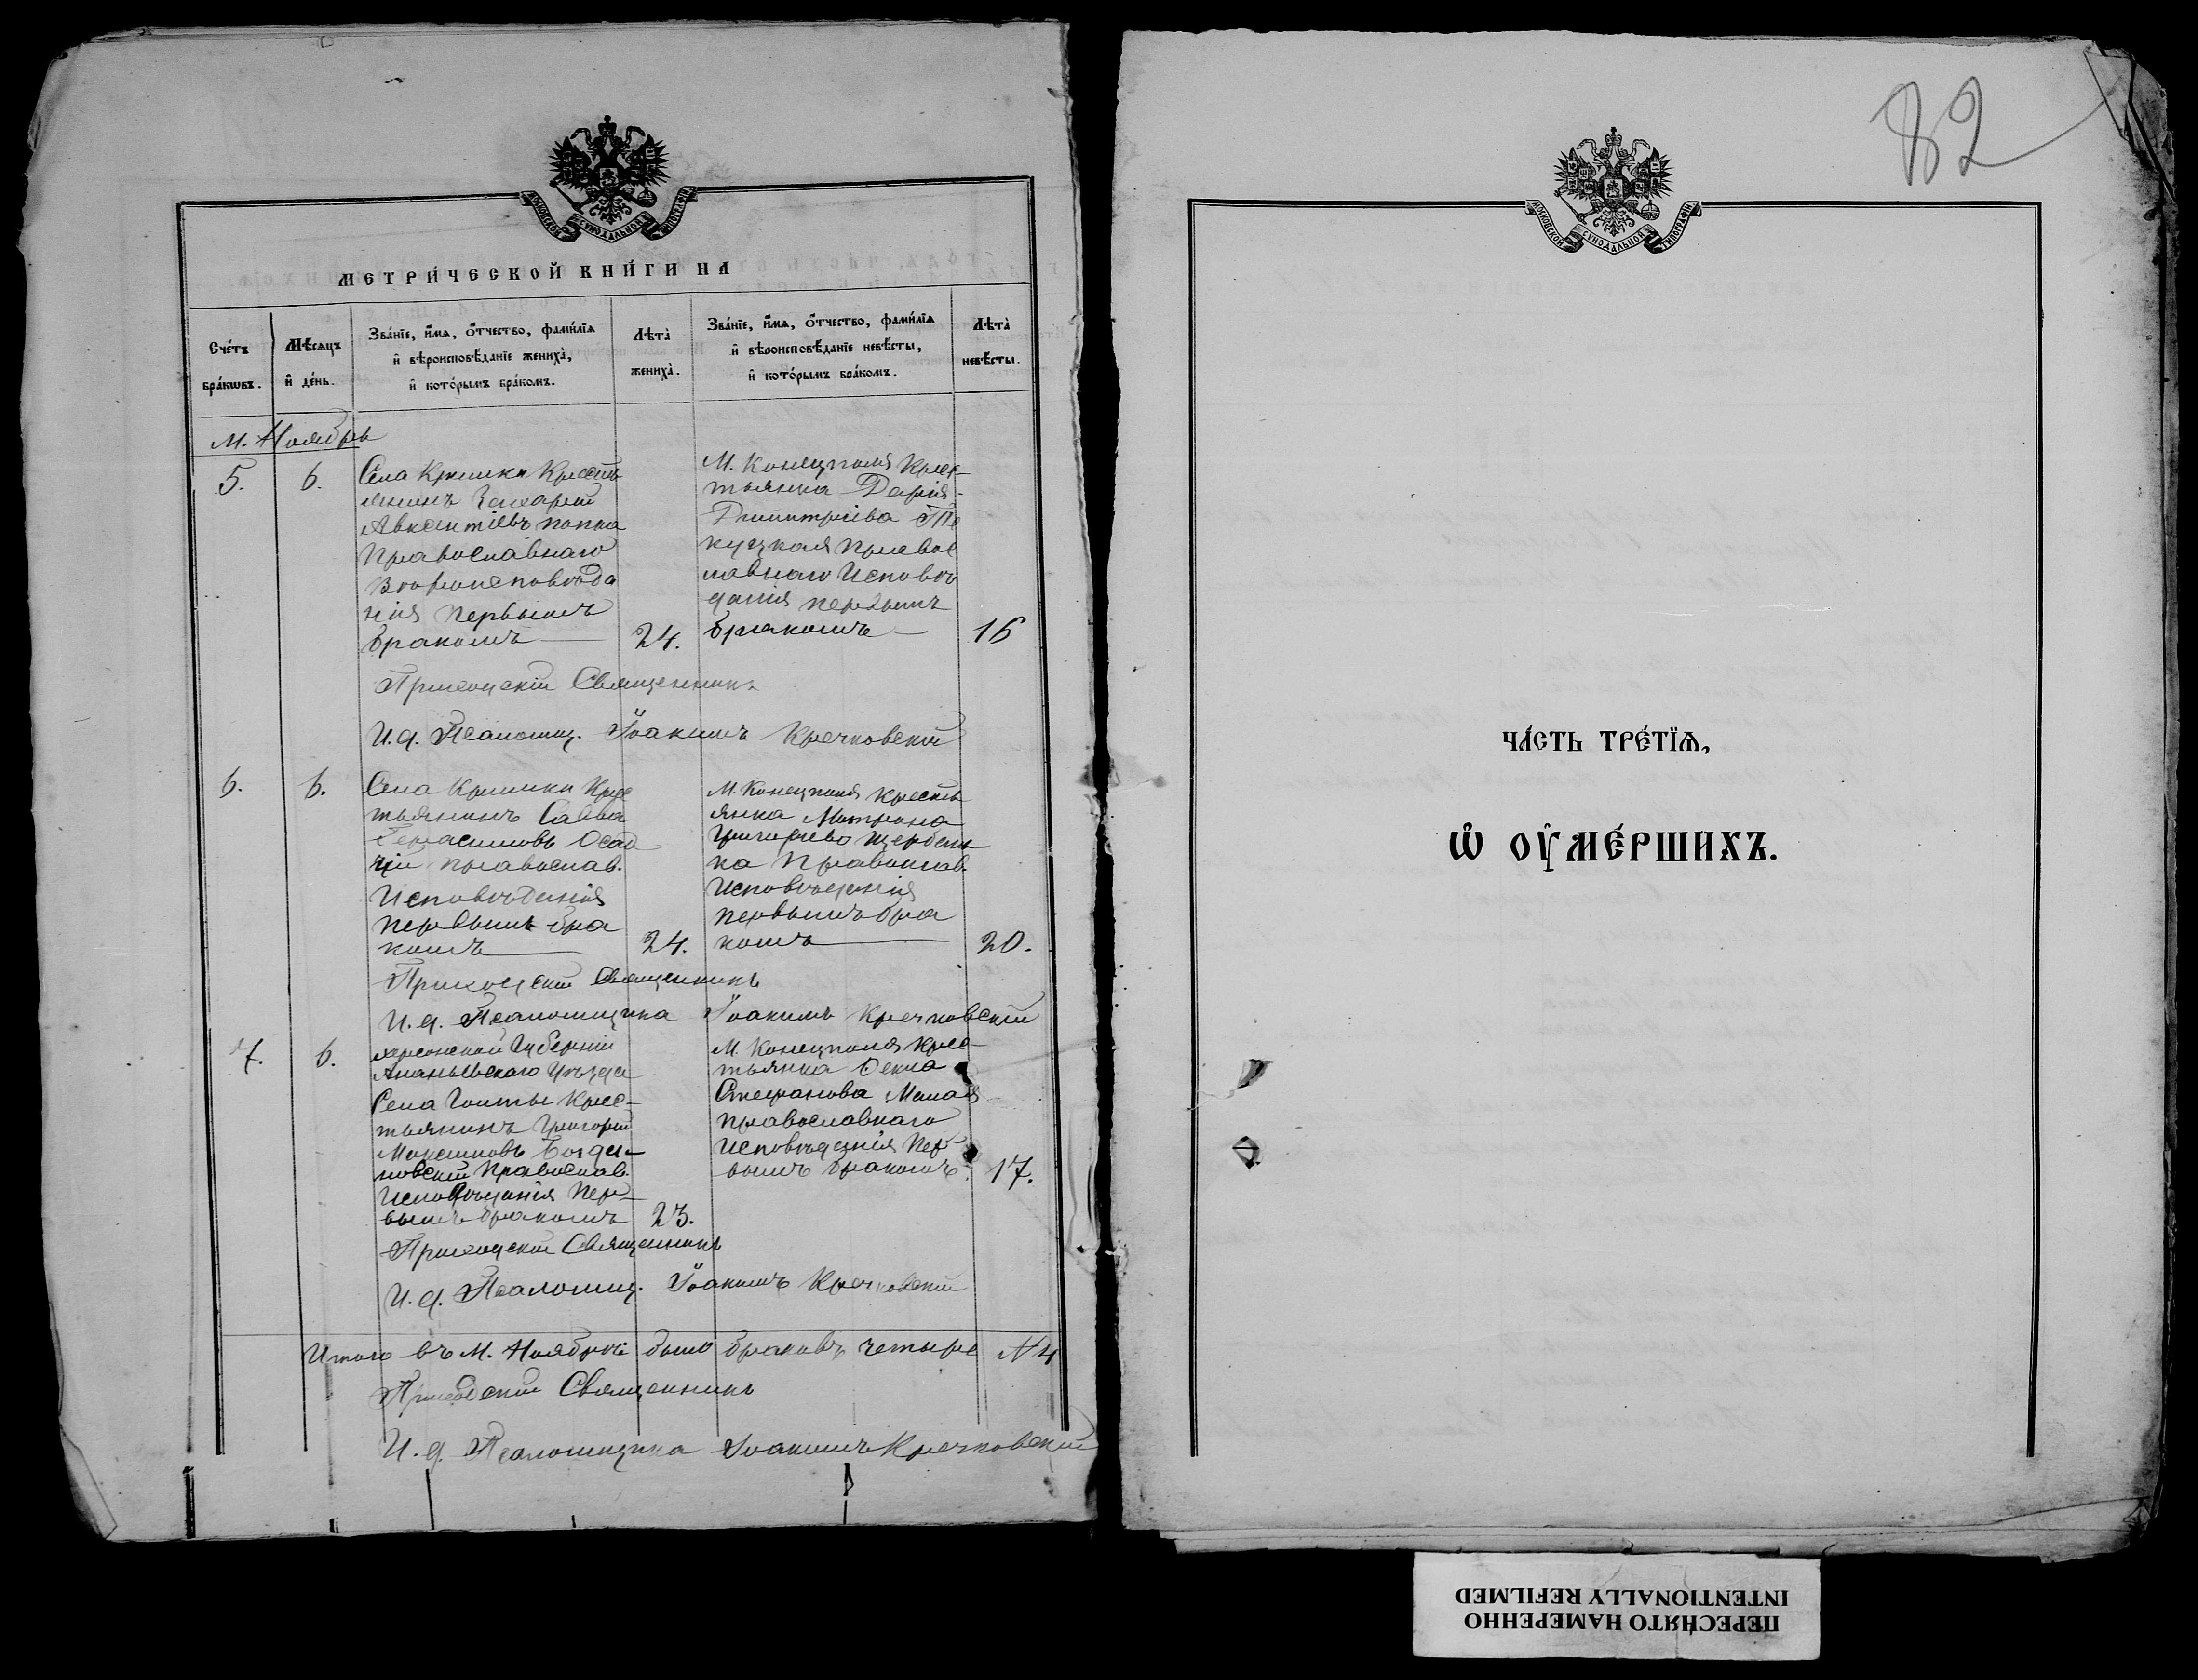 МОСКОВСКОЙ СѴНОДАЛЬНОЙ ТИПОГРАФІИ
МЕТРИ́ЧЕСКОЙ КНИ́ГИ НА
Сче́тъ бра́кѡвъ.
Мѣ́сяцъ и҆ де́нь.
Зва́нїе, и҆́мѧ, ѻ҆́тчество, фами́лїа
и҆ вѣроисповѣ́данїе жениха̀,
и҆ кото́рымъ бра́комъ.
Лѣта̀ жениха̀.
Зва́нїе, и҆́мѧ, ѻ҆́тчество, фами́лїа
и҆ вѣроисповѣ́данїе невѣ́сты,
и҆ кото́рымъ бра́комъ.
Лѣта̀ невѣ́сты.
М. Ноябрь
5.
6.
Села Кришки Кресть
янинъ Захарій
Авксентіевъ попка
Православнаго
Вѣроисповѣда
нія первымъ
бракомъ
24.
М. Конецполя Крес-
тьянка Дарія
Димитріева
куцкая Правос
лавнаго Исповѣ
данія первымъ
бракомъ
16
Приходскій Священникъ
И. д. Псаломщ. Іоакимъ Кречковскій
6.
6.
Села Кришки Крес
тьянинъ Савва
Герасимовъ Осад
чій православ.
Исповѣданія
первымъ бра
комъ
24.
М. Конецполя кресть
янка Матрона
Григорьева Щербань
ка Православ.
Исповѣданія
первымъ бра
комъ
20.
Приходскій Священникъ
И. д. Псаломщика Іоакимъ Кречковскій
7.
6.
Херсонской Губерніи
Ананьевскаго Уѣзда
Села Гонты Крес-
тьянинъ Григорій
Максимовъ Богда-
новскій Православ.
Исповѣданія Пер-
вымъ бракомъ
23.
М. Конецполя Крес-
тьянка Ѳекла
Стефанова Малая
православнаго
Исповѣданія Пер-
вымъ бракомъ.
17.
Приходскій Священникъ
И. д. Псаломщ. Іоакимъ Кречковскій
Итого въ М. Ноябрѣ было браковъ четыре № 4
Приходскій Священникъ
И. д. Псаломщика Іоакимъ Кречковскій
82
МОСКОВСКОЙ СѴНОДАЛЬНОЙ ТИПОГРАФІИ
ЧА́СТЬ ТРЕ́ТЇѦ,
Ѡ҆ ОУ҆МЕ́РШИХЪ.
ПЕРЕСНЯТО НАМЕРЕННО
INTENTIONALLY REFILMED